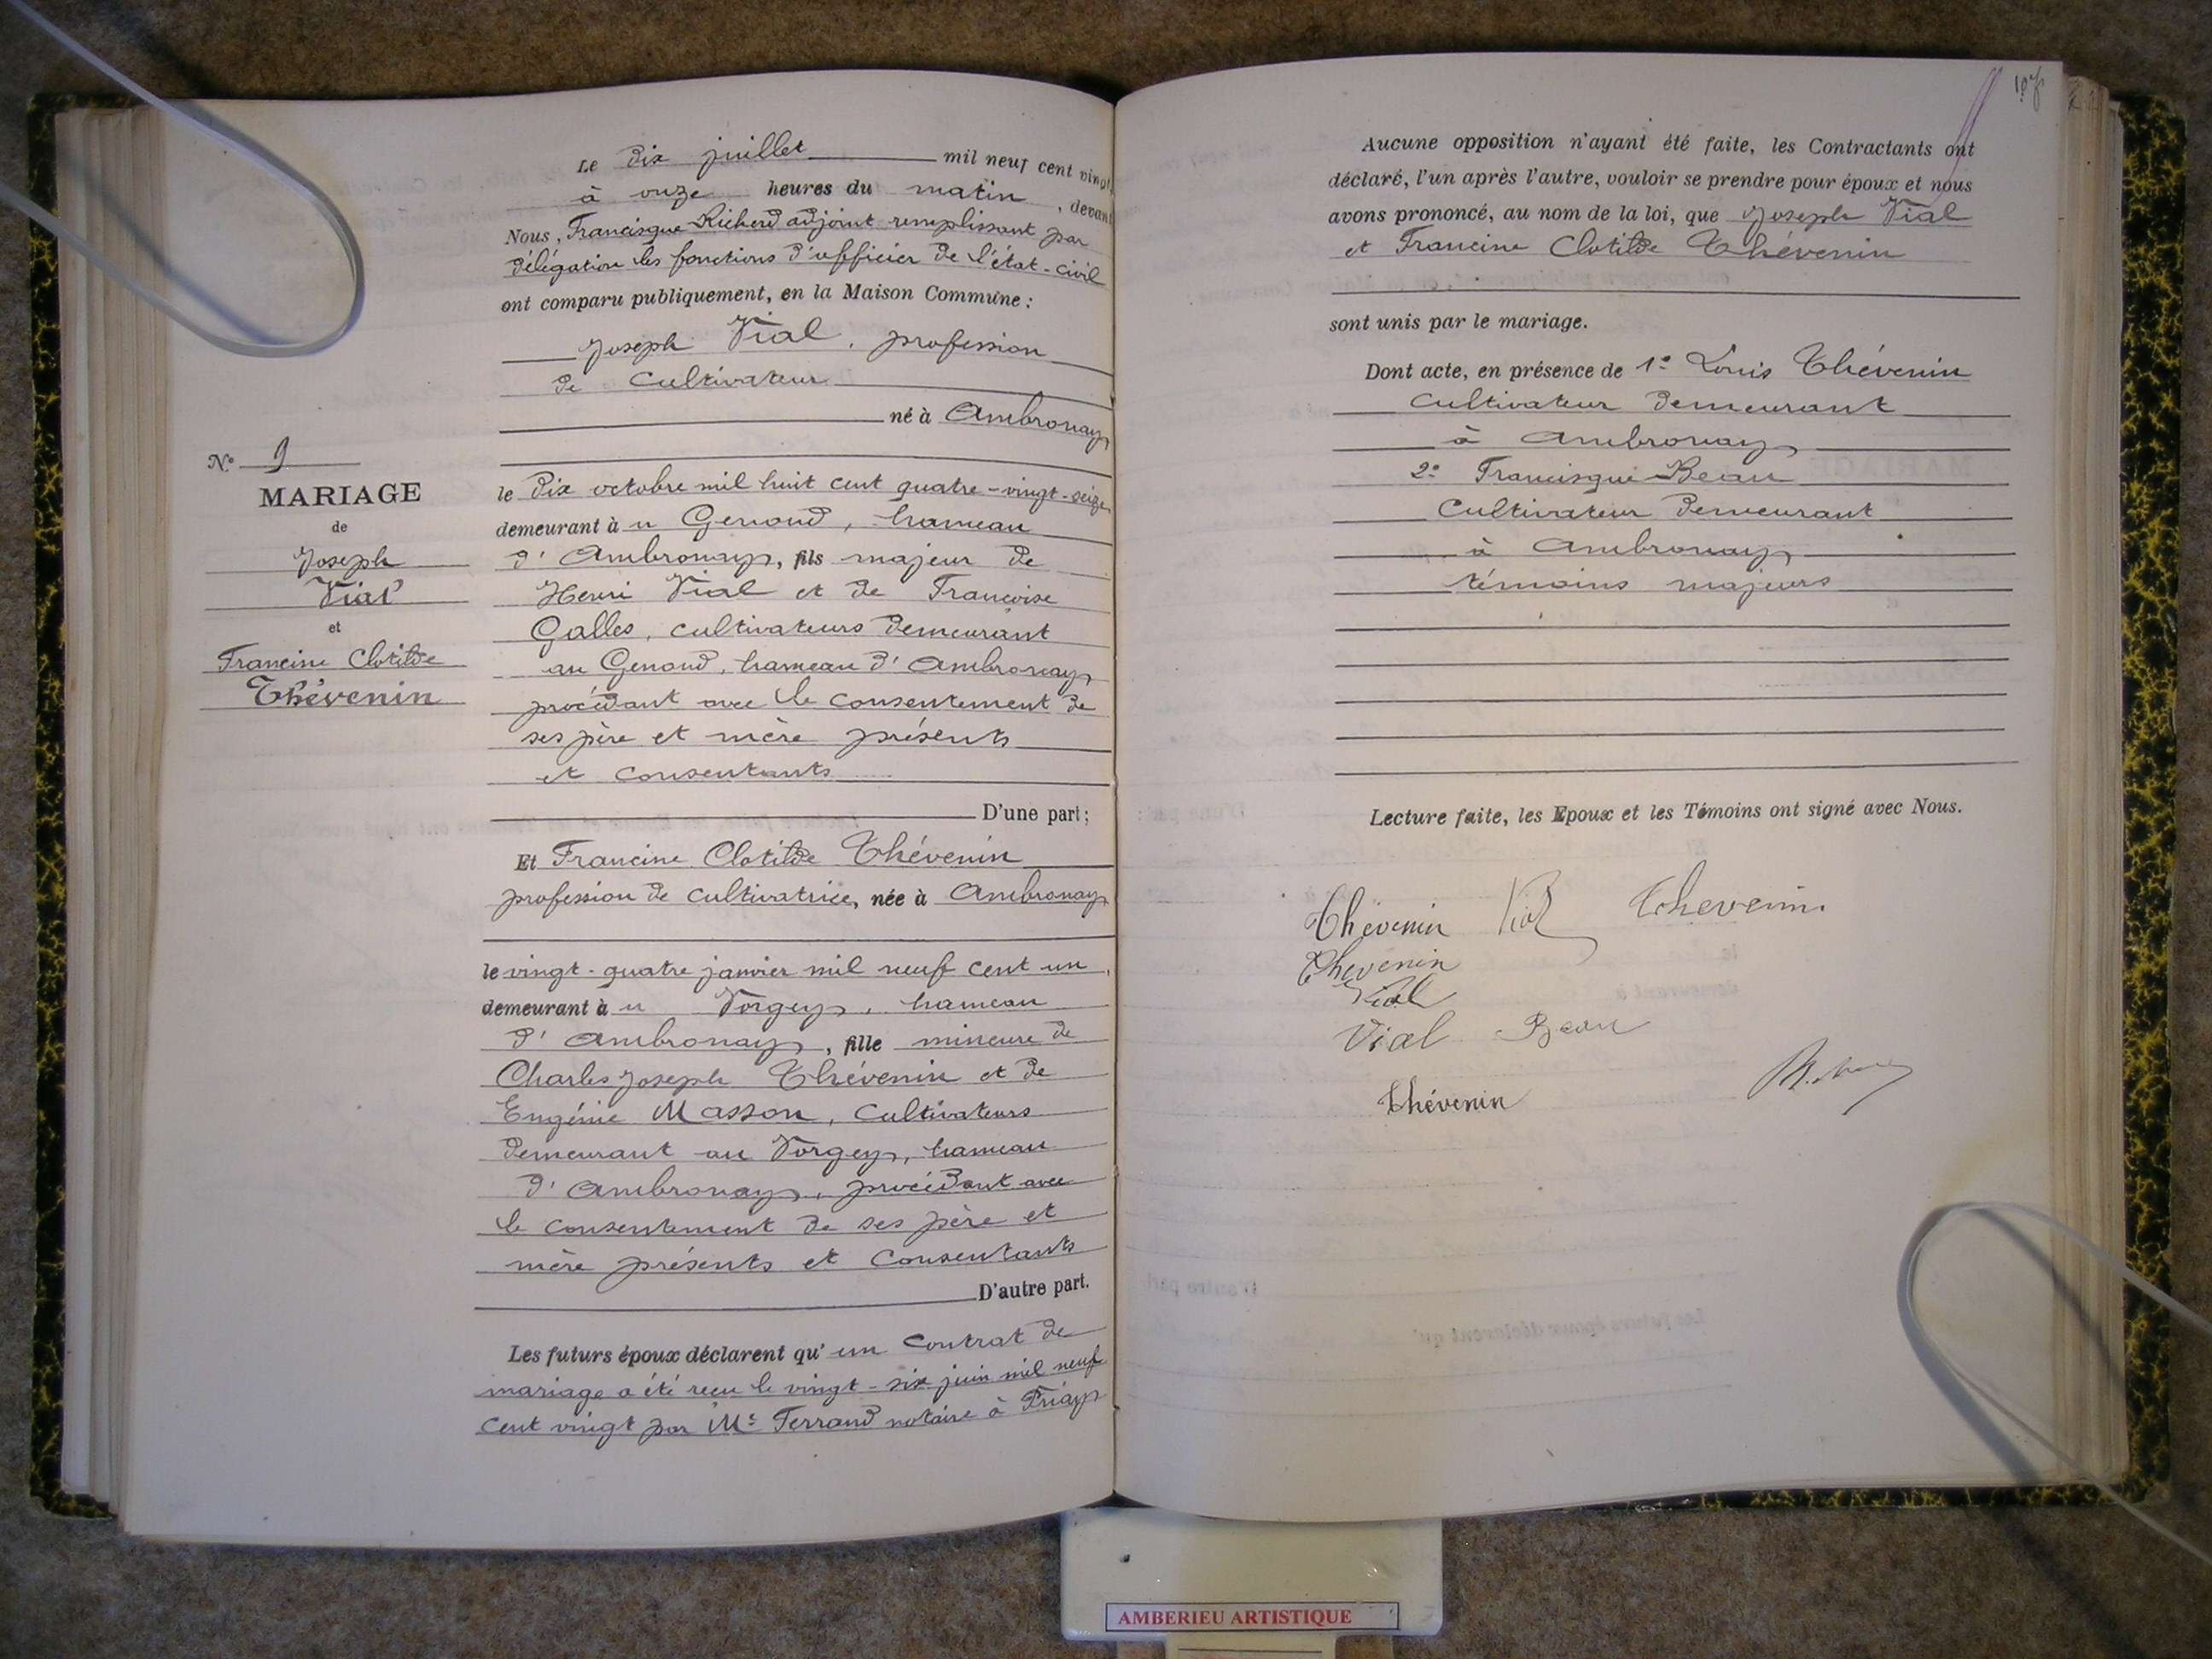 N° 9
MARIAGE
de
Joseph
Vial
et
Francine Clotilde
Thévenin
Le dix juillet mil neuf cent vingt,
à onze heures du matin, devant
Nous, Francisque Richerd adjoint remplissant par
délégation les fonctions d'officier de l'état-civil
ont comparu publiquement, en la Maison Commune :
Joseph Vial, profession
de Cultivateur
né à Ambronay
le dix octobre mil huit cent quatre-vingt-seize
demeurant à u Genoud, hameau
d'Ambronay, fils majeur de
Henri Vial et de Françoise
Galles, cultivateurs demeurant
au Genoud, hameau d'Ambronay
procédant avec le consentement de
ses père et mère présents
et consentants
D'une part ;
Et Francine Clotilde Thévenin
profession de cultivatrice, née à Ambronay
le vingt-quatre janvier mil neuf cent un,
demeurant à u Vorgey, hameau
d'Ambronay, fille mineure de
Charles Joseph Thévenin et de
Eugénie Masson, Cultivateurs
demeurant au Vorgey, hameau
d'Ambronay, procédant avec
le consentement de ses père et
mère présents et consentants
D'autre part.
Les futurs époux déclarent qu'un contrat de
mariage a été reçu le vingt-six juin mil neuf
cent vingt par Me Ferrand notaire à Priay
Aucune opposition n'ayant été faite, les Contractants ont
déclaré, l'un après l'autre, vouloir se prendre pour époux et nous
avons prononcé, au nom de la loi, que Joseph Vial
et Francine Clotilde Thévenin
sont unis par le mariage.
Dont acte, en présence de 1° Louis Thévenin
Cultivateur demeurant
à Ambronay
2° Francisque Beau
Cultivateur demeurant
à Ambronay
témoins majeurs
Lecture faite, les Epoux et les Témoins ont signé avec Nous.
Thévenin Vial Thevenin
Thevenin
Vial
Vial Beau
Thévenin
AMBERIEU ARTISTIQUE